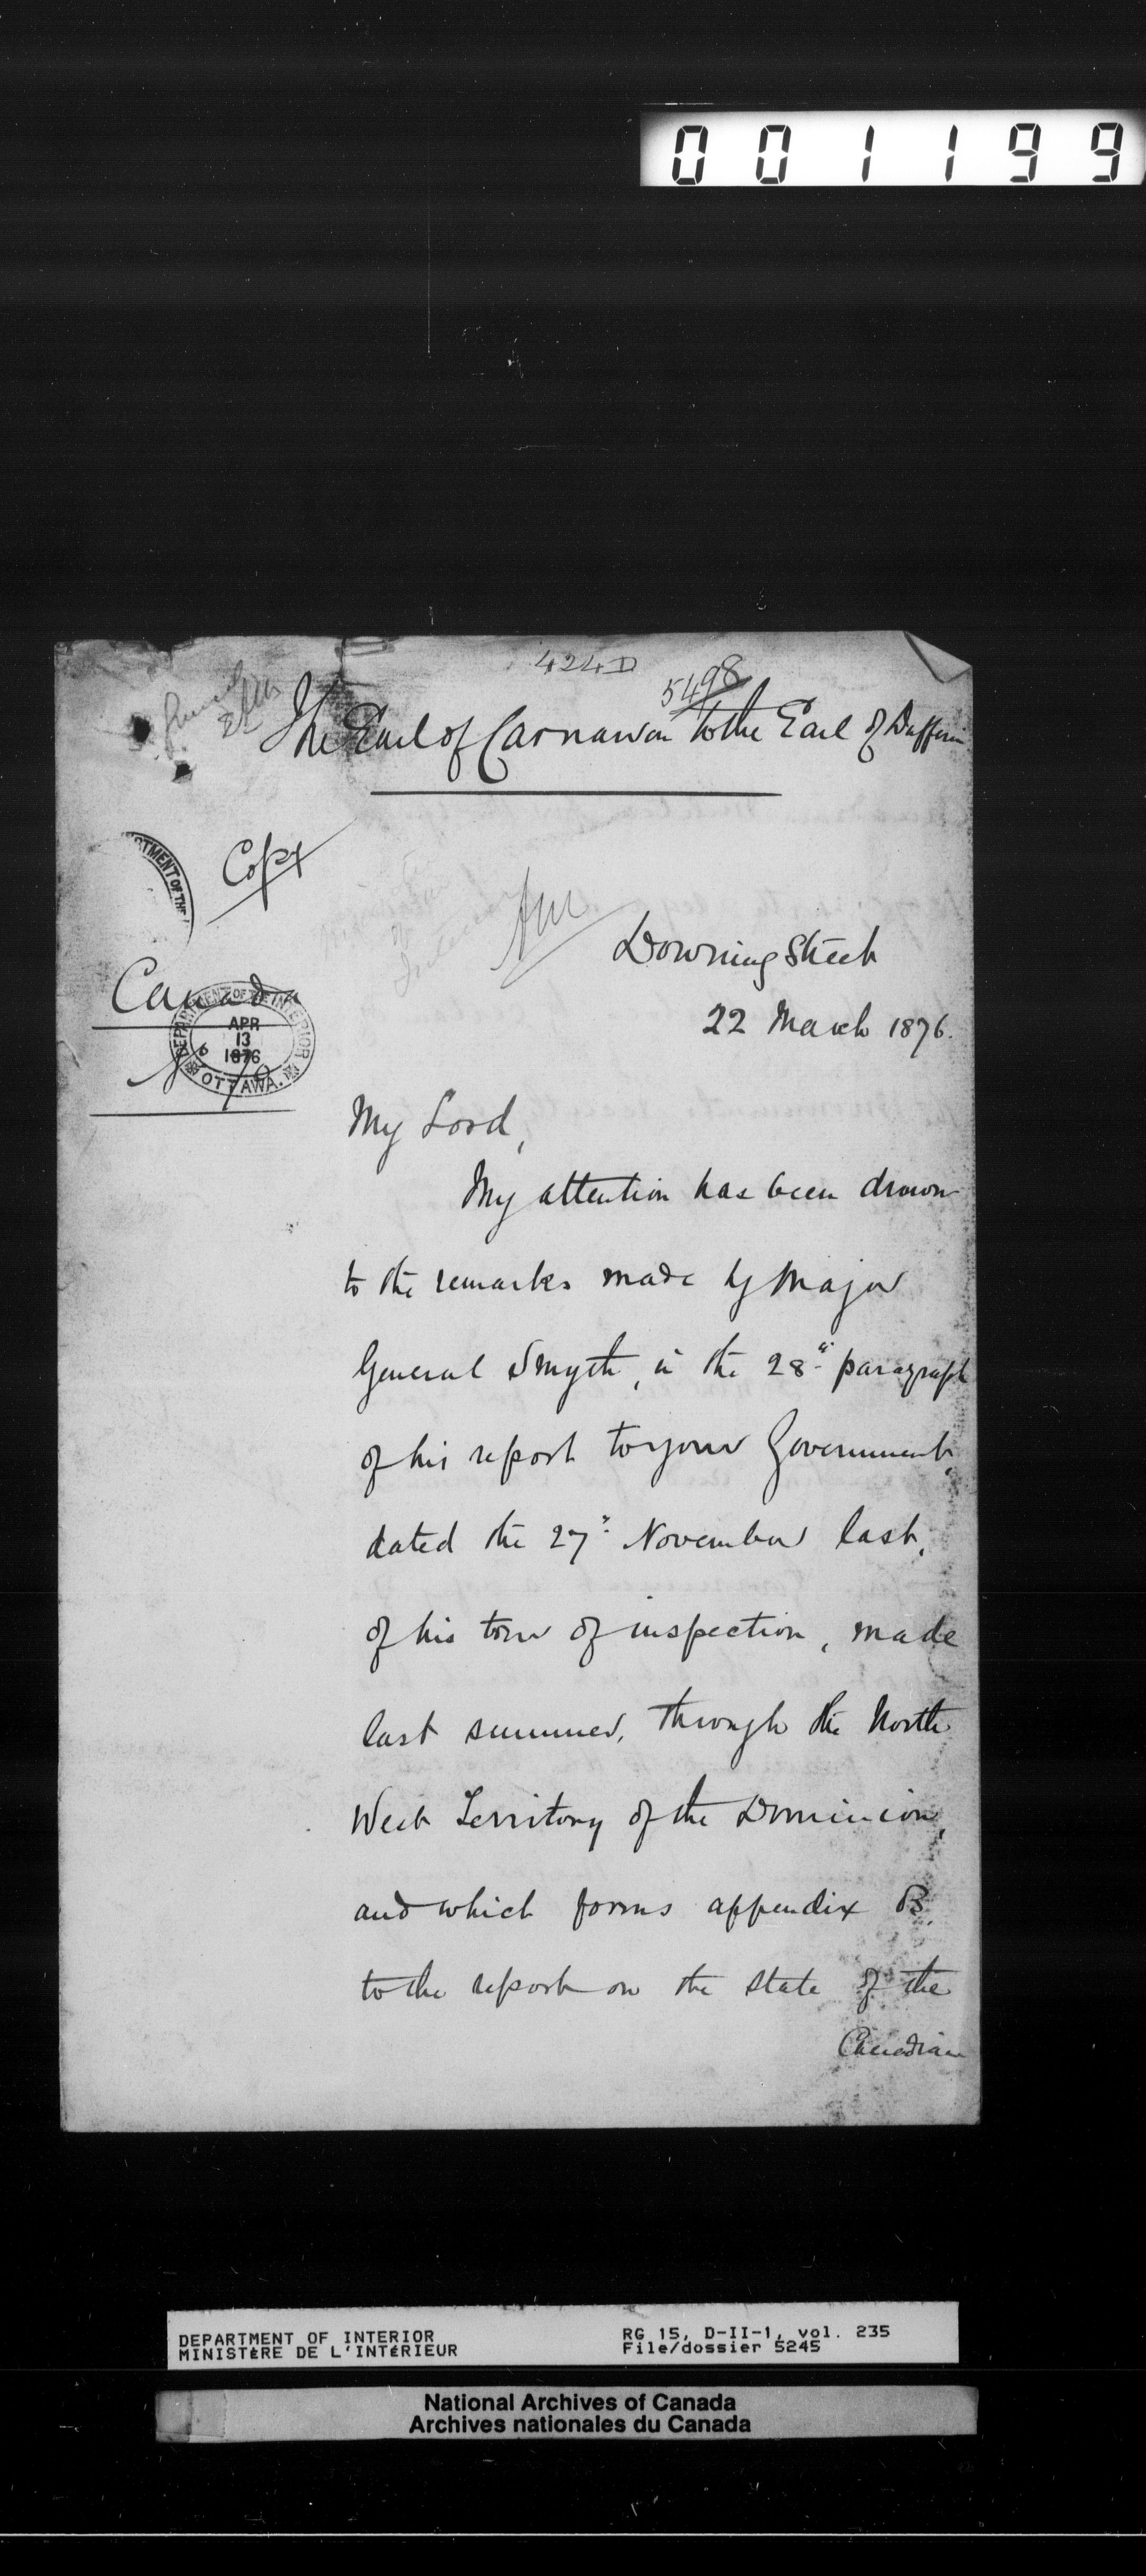 001199
424D
5498
The Earl of Carnarvon to the Earl of Dufferin
TMENT OF THE
Copy
Downing Street
Canada
DEPARTMENT OF THE INTERIOR
APR
13
1876
OTTAWA.
22 March 1876.
My Lord,
My attention has been drawn
to the remarks made by Major
General Smyth, in the 28th paragraph
of his report to your Government,
dated the 27th November last,
of his tour of inspection, made
last summer, through the North
West Territory of the Dominion,
and which forms appendix B.
to the report on the state of the
Canadian
DEPARTMENT OF INTERIOR
MINISTÈRE DE L'INTÉRIEUR
RG 15, D-II-1, vol. 235
File/dossier 5245
National Archives of Canada
Archives nationales du Canada